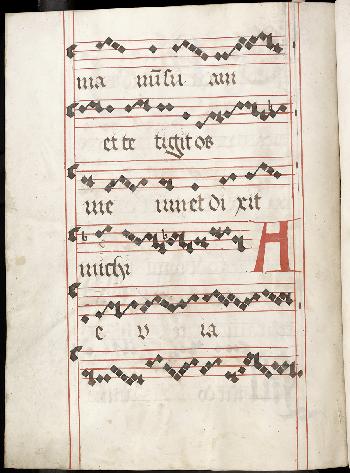 ma nū su am
et te tigit os
me um et di xit
michi A
e v ia